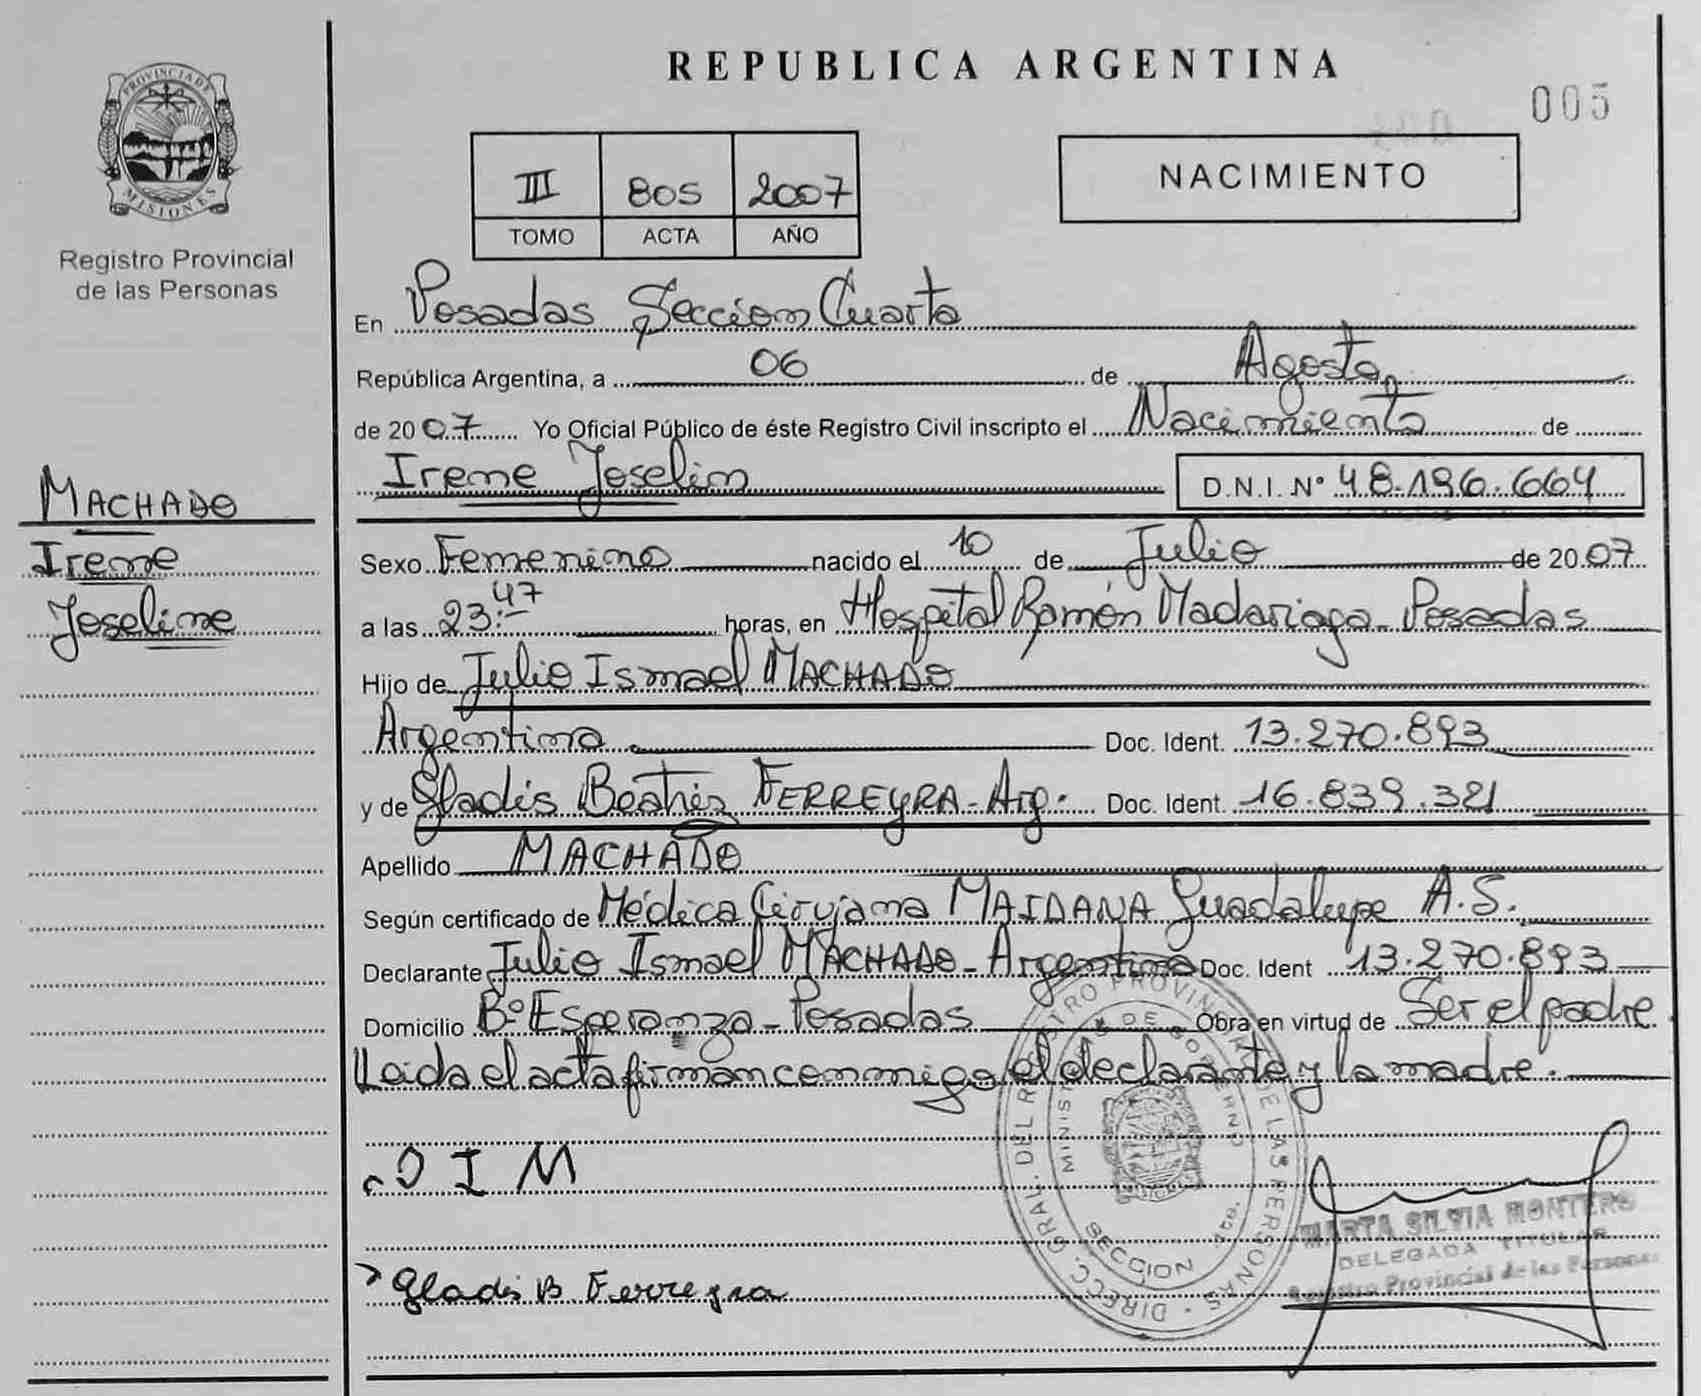 REPUBLICA ARGENTINA
005
PROVINCIA DE
MISIONES
Registro Provincial
de las Personas
III 805 2007
TOMO ACTA AÑO
NACIMIENTO
En Posadas Seccion Cuarta
República Argentina, a 06 de Agosto
de 2007 Yo Oficial Público de éste Registro Civil inscripto el Nacimiento de
Irene Joselin D.N.I. N° 48.196.664
MACHADO
Irene
Joseline
Sexo Femenino nacido el 10 de Julio de 2007
a las 23:47 horas, en Hospital Ramón Madariaga - Posadas
Hijo de Julio Ismael MACHADO
Argentino Doc. Ident. 13.270.893
y de Gladis Beatriz FERREYRA - Arg. Doc. Ident. 16.839.321
Apellido MACHADO
Según certificado de Médica Cirujana MAIDANA Guadalupe A.S.
Declarante Julio Ismael MACHADO - Argentino Doc. Ident 13.270.893
Domicilio B° Esperanza - Posadas Obra en virtud de Ser el padre.
Leida el acta firman conmigo el declarante y la madre.
J I M
Gladis B Ferreyra
DIREC. GRAL. DEL REGISTRO PROVINCIAL DE LAS PERSONAS
MINISTERIO DE GOBIERNO
MISIONES
SECCION 4ta.
MARTA SILVIA MONTERO
DELEGADA TITULAR
Registro Provincial de las Personas